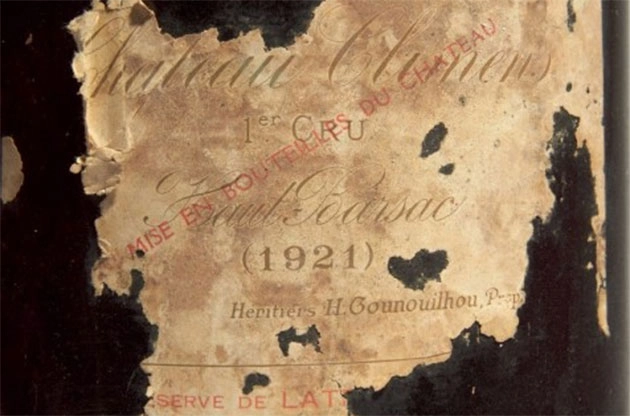 Château Climens
MISE EN BOUTEILLES DU CHATEAU
1er CRU
Haut-Barsac
(1921)
Héritiers H. Gounouilhou, Prop
SERVE DE LAT